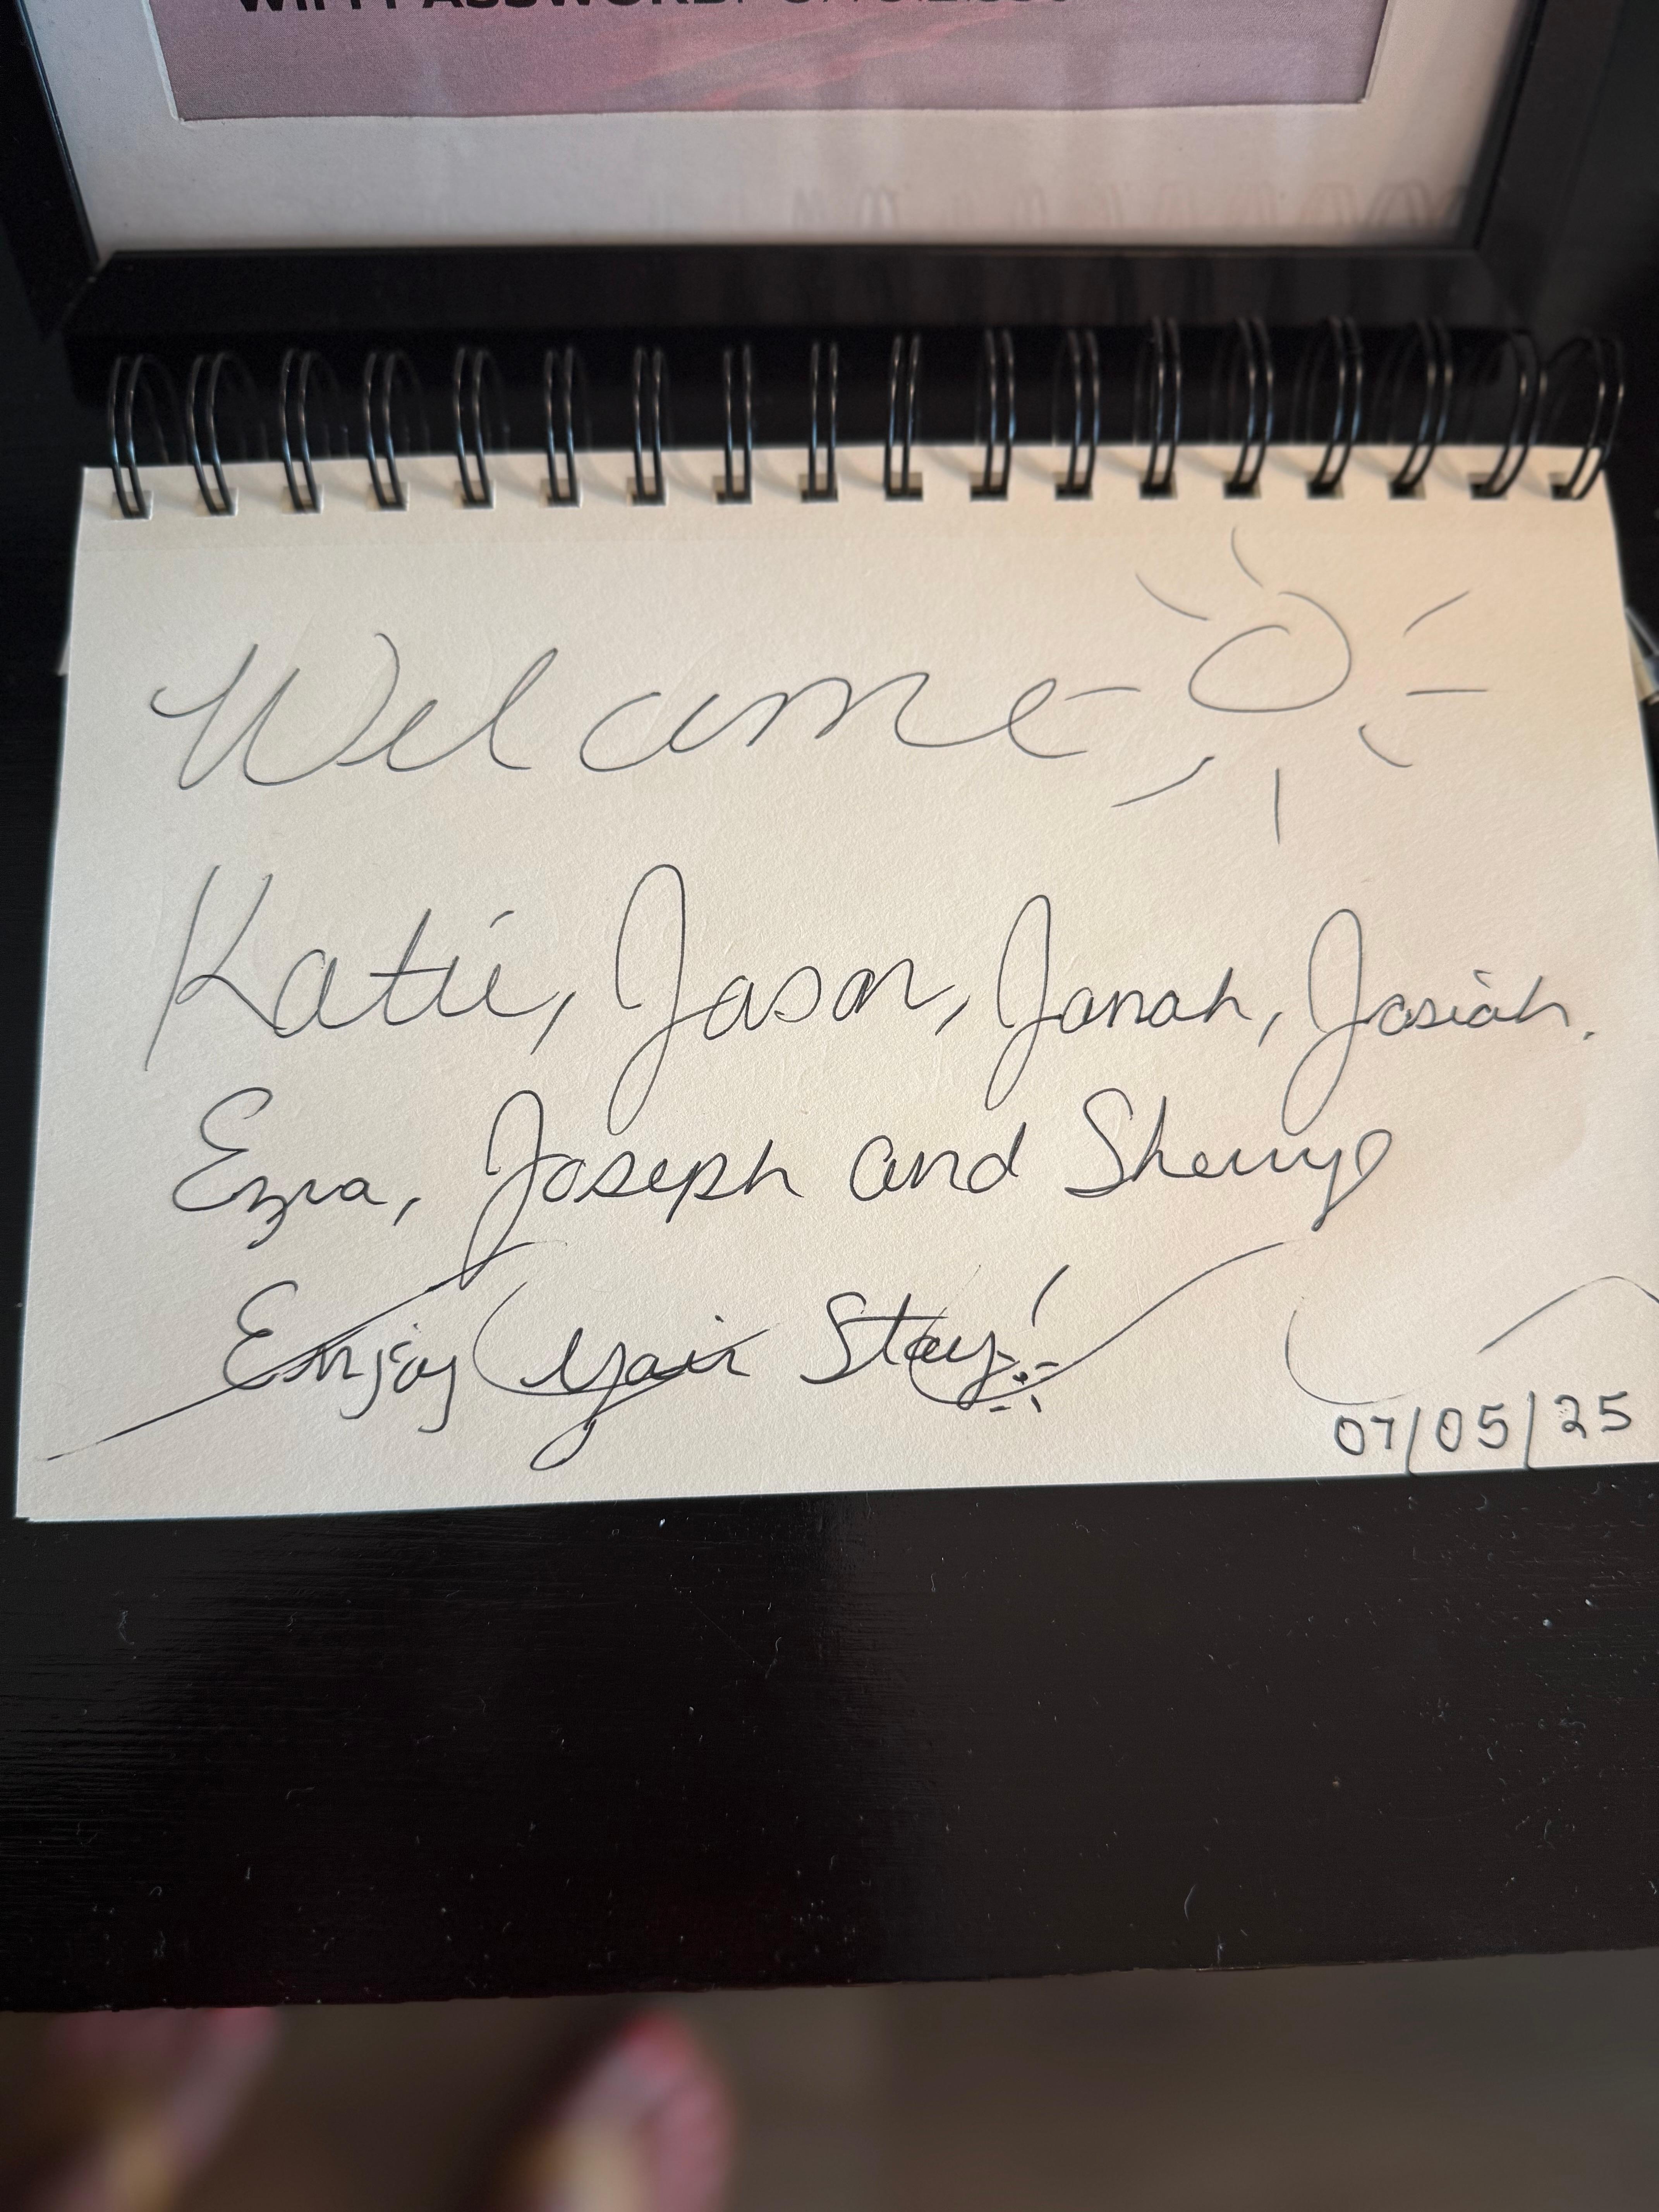 WIFI PASSWORD:
Welcome
Katie, Jason, Jonah, Josiah,
Ezra, Joseph and Sherry
Enjoy your Stay!
07/05/25